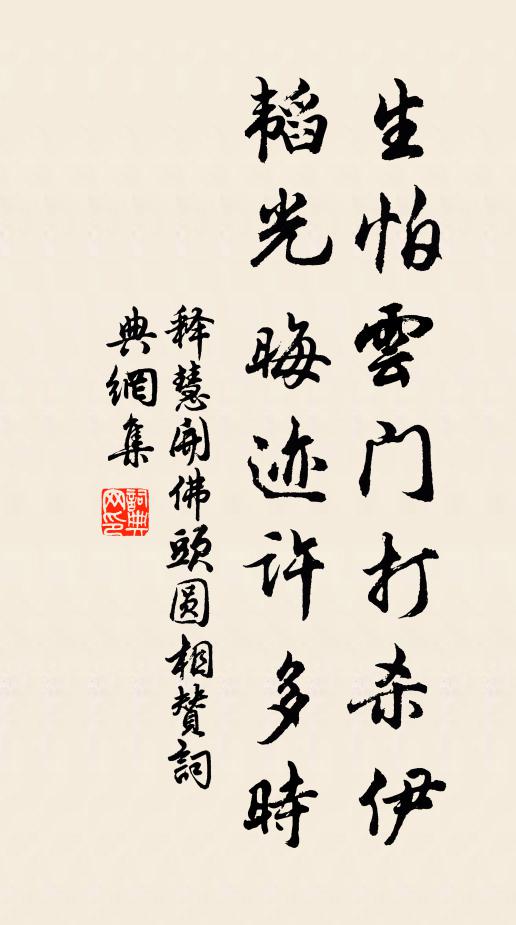 生怕雲門打杀伊
韬光晦迹许多時
释慧開佛頭圆相贊詞
典網集
詞典网印